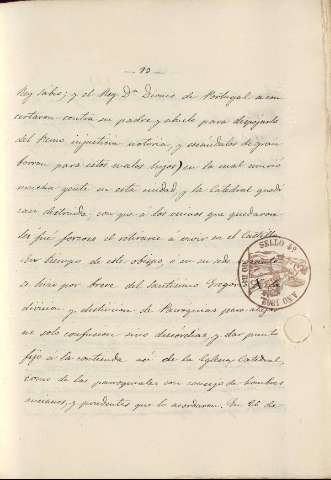 — 90 —
Rey Sabio; y el Rey Dn. Dionis de Portugal se con
certaron contra su padre y abuelo para despojarlo
del Reino injusticia notoria, y escándalos de gran
borron para estos malos hijos) en la cual murió
mucha gente en esta ciudad, y la Catedral quedó
casi destruida; con que á los vecinos que quedaron
les fué forzoso el retirarse á vivir en el Castillo
En tiempo de este obispo, ó en su sede
se hizo por breve del Santisimo Gregorio X la
division y distincion de Parroquias para
no solo confusion sino discordias, y dar punto
fijo á la contienda asi de la Iglesia Catedral,
como de las parroquiales con consejo de hombres
ancianos, y prudentes que lo acordaron. En 26 de
SELLO 4º
AÑO 1901